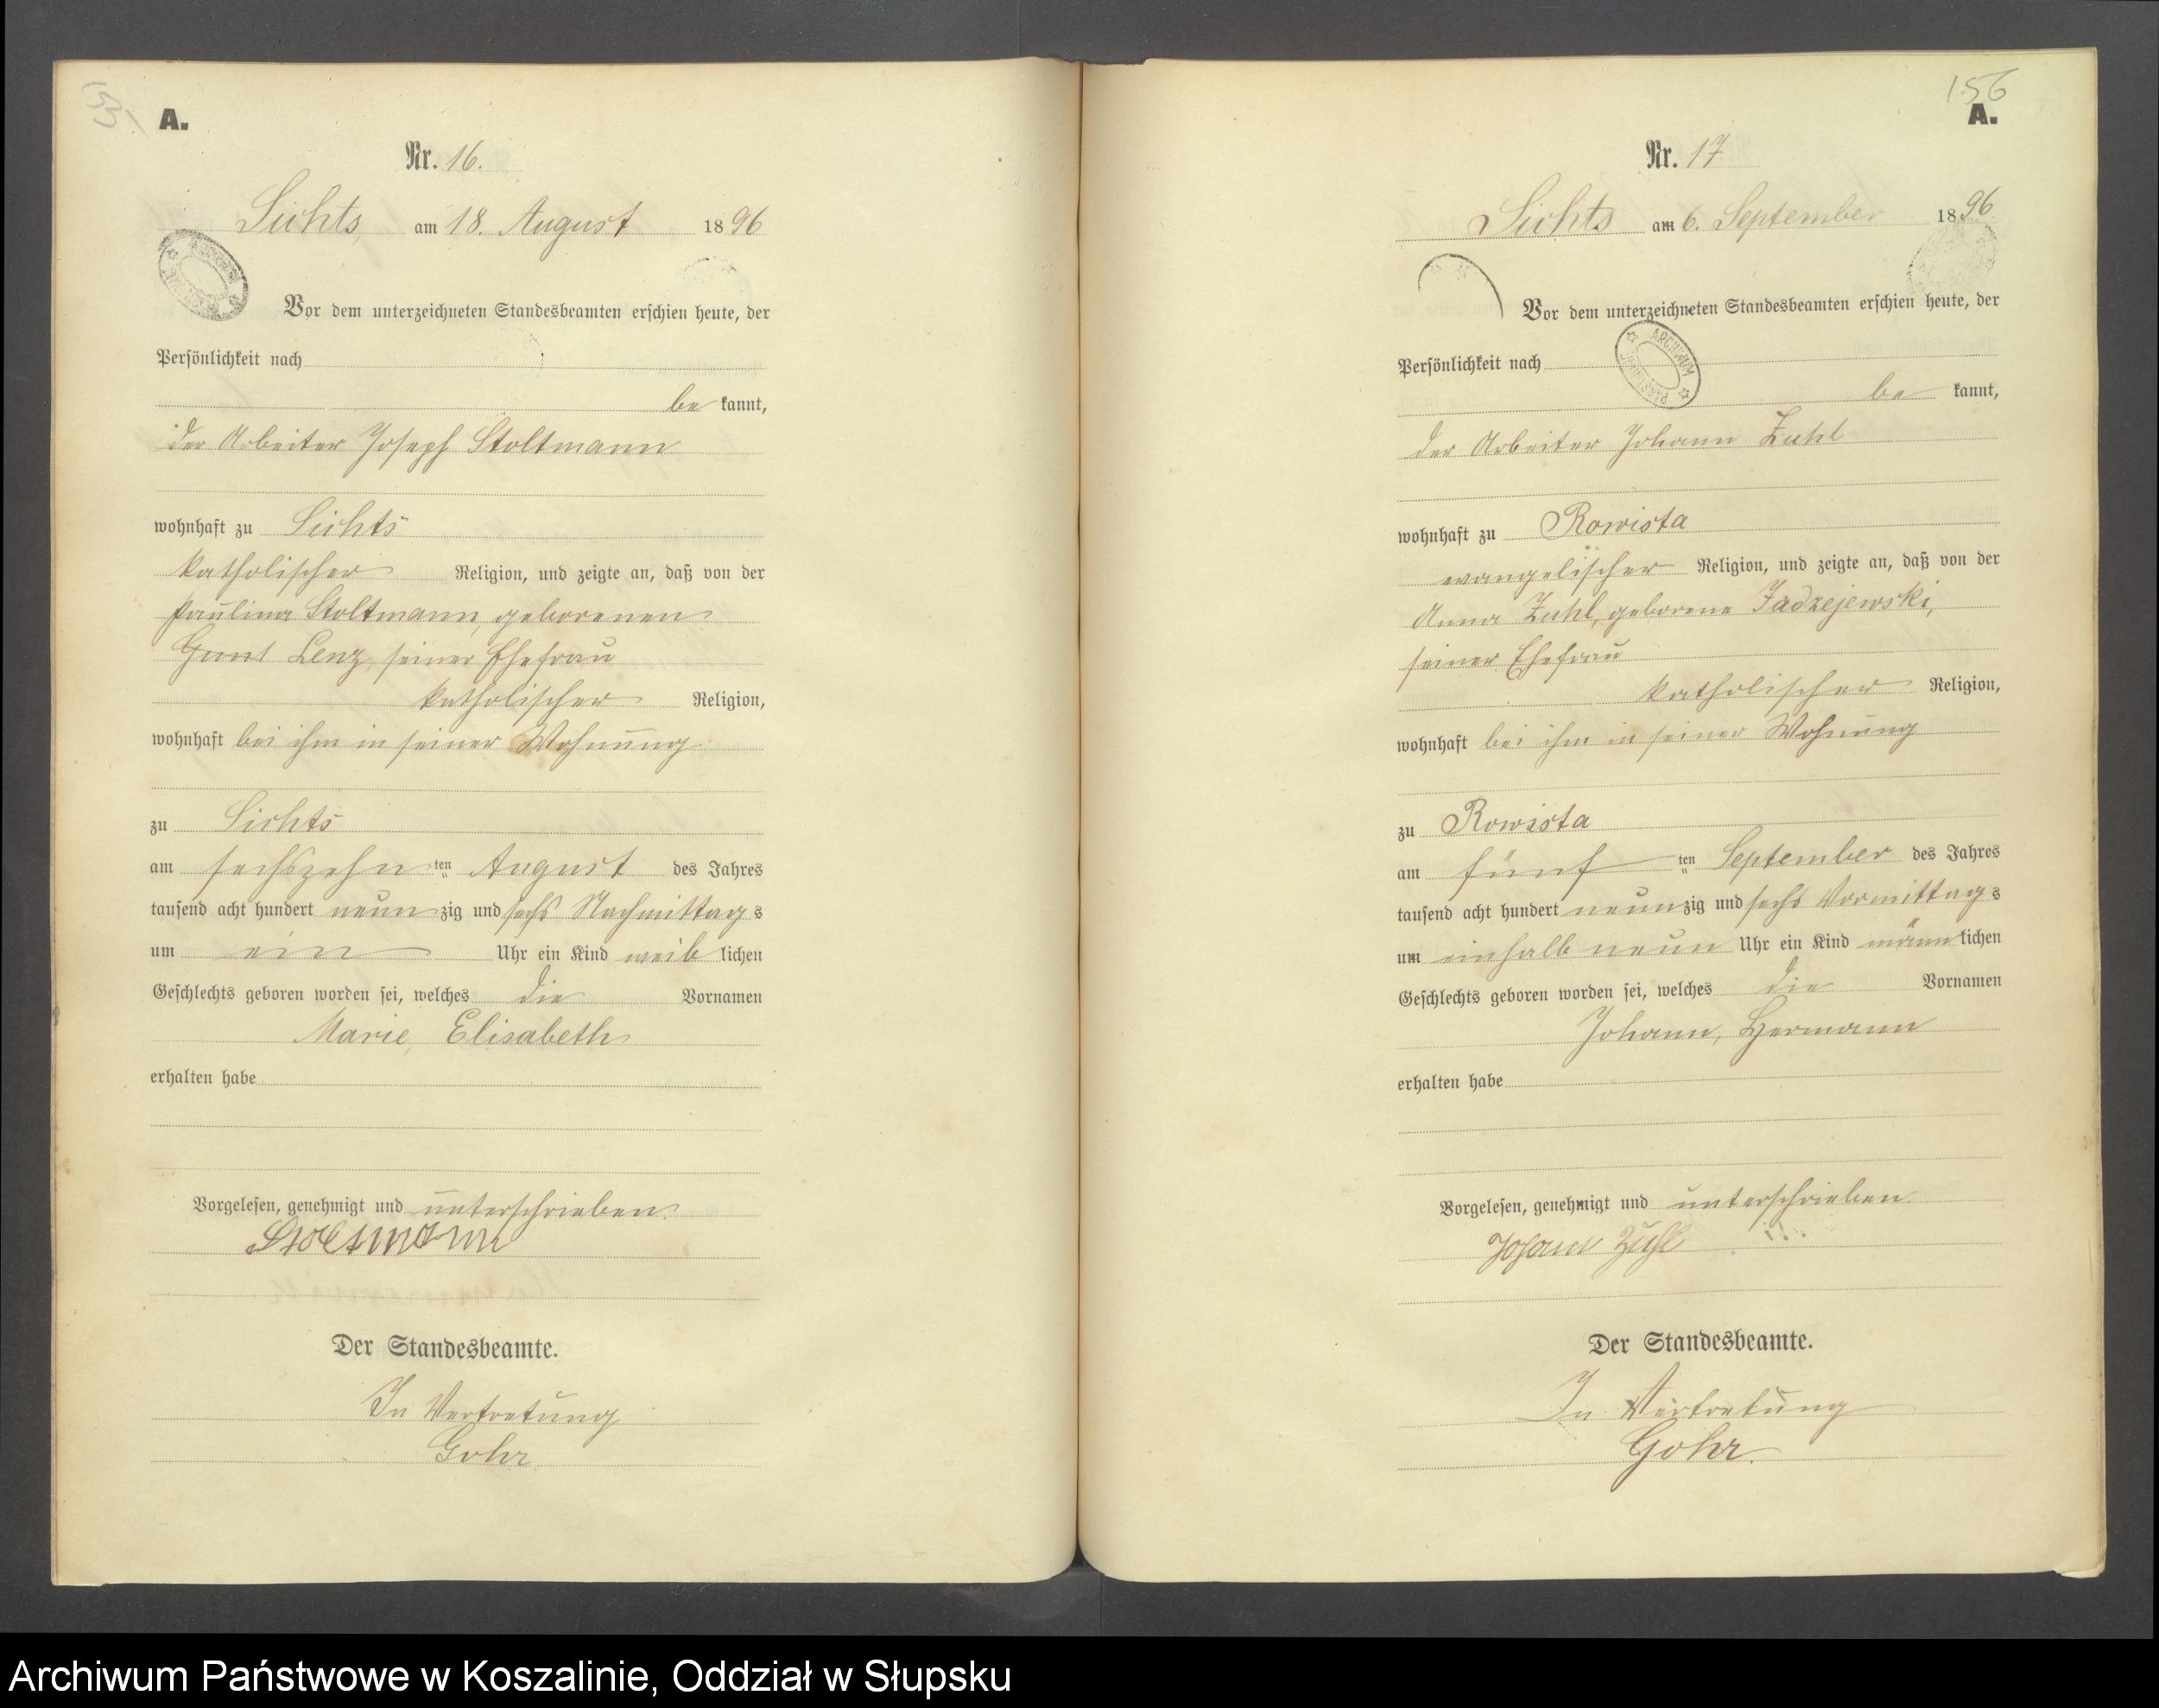 A.
Nr. 16.
Lichts, am 18. August 1896
Vor dem unterzeichneten Standesbeamten erschien heute, der
Persönlichkeit nach
be kannt,
der Arbeiter Joseph Stoltmann
wohnhaft zu Lichts
katholischer Religion, und zeigte an, daß von der
Paulina Stoltmann, geborenen
Lenz, seiner Ehefrau
katholischer Religion,
wohnhaft bei ihm in seiner Wohnung
zu Lichts
am sechszehn ten August des Jahres
tausend acht hundert neun zig und sechs Nachmittag s
um ein Uhr ein Kind weib lichen
Geschlechts geboren worden sei, welches die Vornamen
Marie, Elisabeth
erhalten habe
Vorgelesen, genehmigt und unterschrieben.
Stoltmann
Der Standesbeamte.
In Vertretung
Gohr.
156
A.
Nr. 17
Lichts am 6. September 1896.
Vor dem unterzeichneten Standesbeamten erschien heute, der
Persönlichkeit nach
ARCHIWUM
be kannt,
der Arbeiter Johann Zuhl
wohnhaft zu Rowista
evangelischer Religion, und zeigte an, daß von der
Anna Zuhl, geborene Jadzejewski,
seiner Ehefrau
katholischer Religion,
wohnhaft bei ihm in seiner Wohnung
zu Rowista
am fünf ten September des Jahres
tausend acht hundert neun zig und sechs Vormittag s
um einhalb neun Uhr ein Kind männ lichen
Geschlechts geboren worden sei, welches die Vornamen
Johann, Hermann
erhalten habe
Vorgelesen, genehmigt und unterschrieben.
Johann Zuhl
Der Standesbeamte.
In Vertretung
Gohr.
Archiwum Państwowe w Koszalinie, Oddział w Słupsku